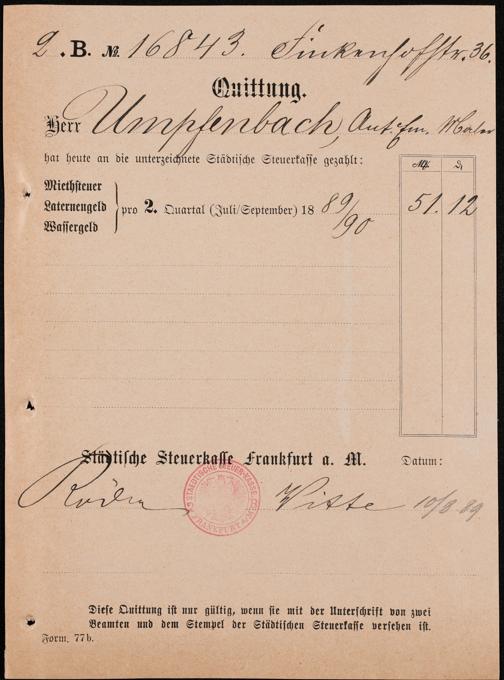 2. B. № 16843. Finkenhofstr. 36.
Quittung.
Herr Umpfenbach, Ant. Em. Maler
hat heute an die unterzeichnete Städtische Steuerkasse gezahlt:
Mk. ₰
Miethsteuer
Laternengeld
Wassergeld
pro 2. Quartal (Juli/September) 18 89/90 51. 12
Städtische Steuerkasse Frankfurt a. M. Datum:
Witte 10/8. 89
STAEDTISCHE STEUER-KASSE
FRANKFURT a/M
Diese Quittung ist nur gültig, wenn sie mit der Unterschrift von zwei
Beamten und dem Stempel der Städtischen Steuerkasse versehen ist.
Form. 77b.